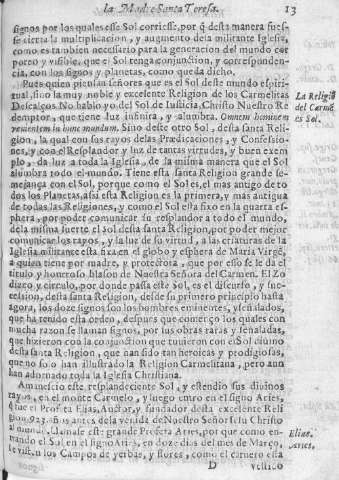 la Madre Santa Teresa. 13
signos por los quales esse Sol corriesse, por q̃ desta manera fues-
se cierta la multiplicacion, y augmento de la militante Iglesia,
como es tambien necessario para la generacion del mundo cor
poreo y visible, que el Sol tenga conjunction, y corresponden-
cia, con los signos y planetas, como queda dicho.
Pues quien piensan señores que es el Sol deste mundo espiri-
tual, sino la muy noble y excelente Religion de los Carmelitas
Descalços No hablo yo del Sol de Iusticia Christo Nuestro Re
demptor, que tiene luz infinita, y alumbra. Omnem hominem
venientem in hunc mundum. Sino deste otro Sol, desta santa Reli-
gion, la qual con sus rayos de las Prædicaciones, y Confessio-
nes, y con el resplandor y luz de tantas virtudes, y buen exem-
plo, da luz a toda la Iglesia, de la misma manera que el Sol
alumbra todo el mundo. Tiene esta santa Religion grande se-
mejança con el Sol, porque como el Sol es, el mas antiguo de to
dos los Planetas, assi esta Religion es la primera, y más antigua
de todas las Religiones, y como el Sol esta fixo en la quarta es-
phera, por poder comunicar su resplandor a todo el mundo,
de la misma suerte el Sol desta santa Religion, por poder mejor
comunicar los rayos, y la luz de su virtud, a las criaturas de la
Iglesia militante esta fixa en el globo y esphera de Maria Virgẽ,
a quien tiene por madre, y protectora, que por esso le da el
titulo y honoroso blason de Nuestra Señora del Carmen. El Zo
diaco y circulo, por donde passa este Sol, es el discurso, y suc-
cession, desta santa Religion, desde su primero principio hasta
agora, los doze signos son los hombres eminentes, y señalados,
que ha tenido esta orden, despues que comerço los quales con
mucha razon se llaman signos, por sus obras raras y señaladas,
que hizieron con la conjunction que tuuieron con el Sol diuino
desta santa Religion, que han sido tan heroicas y prodigiosas,
que no solo han illustrado la Religion Carmelitana, pero aun
han adornado toda la Iglesia Christiana.
Amanescio este resplandeciente Sol, y estendio sus diuinos
rayos, en el monte Carmelo, y luego entro en el signo Aries,
que es el Propheta Elias, Auctor, y fundador desta excelente Reli
gion 923. años antes de la venida de Nuestro Señor Iesu Christo
al mundo. Llamase este grande Propheta Aries, por que como en-
trando el Sol en el signo Aries, en doze dias del mes de Março,
se visten los Campos de yerbas, y flores, como el carnero esta
D vestido
La Religiõ
del Carmẽ
es Sol.
Elias.
Aries.